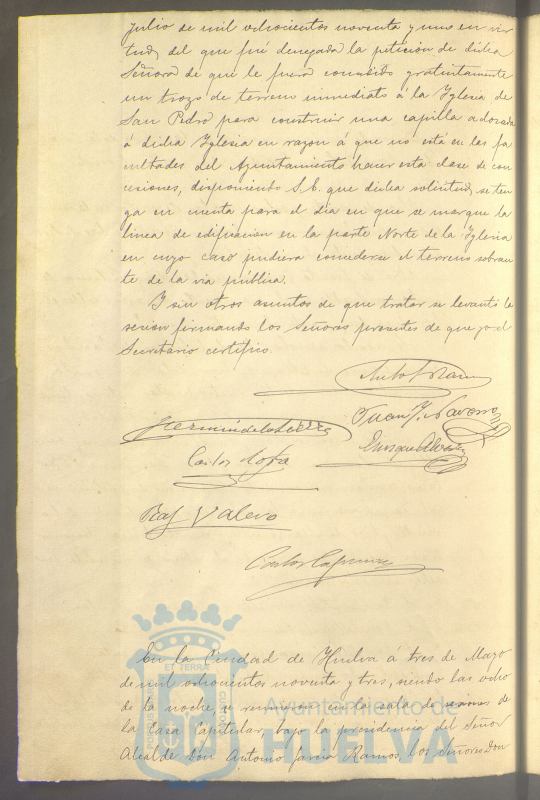 Julio de mil ochocientos noventa y uno en vir
tud, del que fué denegada la petición de dicha
Señora de que le fuera concedido gratuitamente
un trozo de terreno inmediato á la Iglesia de
San Pedro para construir una capilla adosada
á dicha Iglesia en razon á que no está en las fa
cultades del Ayuntamiento hacer esta clase de con
cesiones, disponiendo S.E. que dicha solicitud, se ten
ga en cuenta para el dia en que se marque la
linea de edificacion en la parte Norte de la Iglesia
en cuyo caso pudiera concederse el terreno sobran
te de la via pública.
Y sin otros asuntos de que tratar se levantó la
sesion firmando los Señores presentes de que yo el
Secretario certifico.
Juan J. Navarro
Enrique
Carlos
Raf Valero
Carlos
En la Ciudad de Huelva á tres de Mayo
de mil ochocientos noventa y tres, siendo las ocho
de la noche, se reunieron en la sala de sesiones de
la Casa Capitular, bajo la presidencia del Señor
Alcalde Don Antonio Garcia Ramos, los Señores Don
ET TERRA
PORTUS
CUSTODIA
Ayuntamiento de
HUELVA